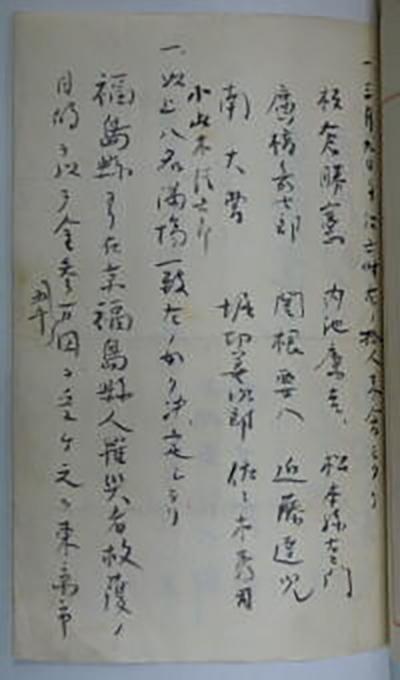 一、三月九日午后六時左ノ 人 会セリ
板倉勝憲 内池廉吉、 松本孫右エ門
廣橋嘉七郎 関根要八 近藤達児
南大曹 堀切善次郎 佐々木秀司
小此木信六郎
一、以上八名満場一致左ノ如ク決定セリ
福島縣ヨリ在京福島縣人罹災者救護ノ
目的ヲ以テ金参万円ヲ受ケ之ヲ東京市
五千